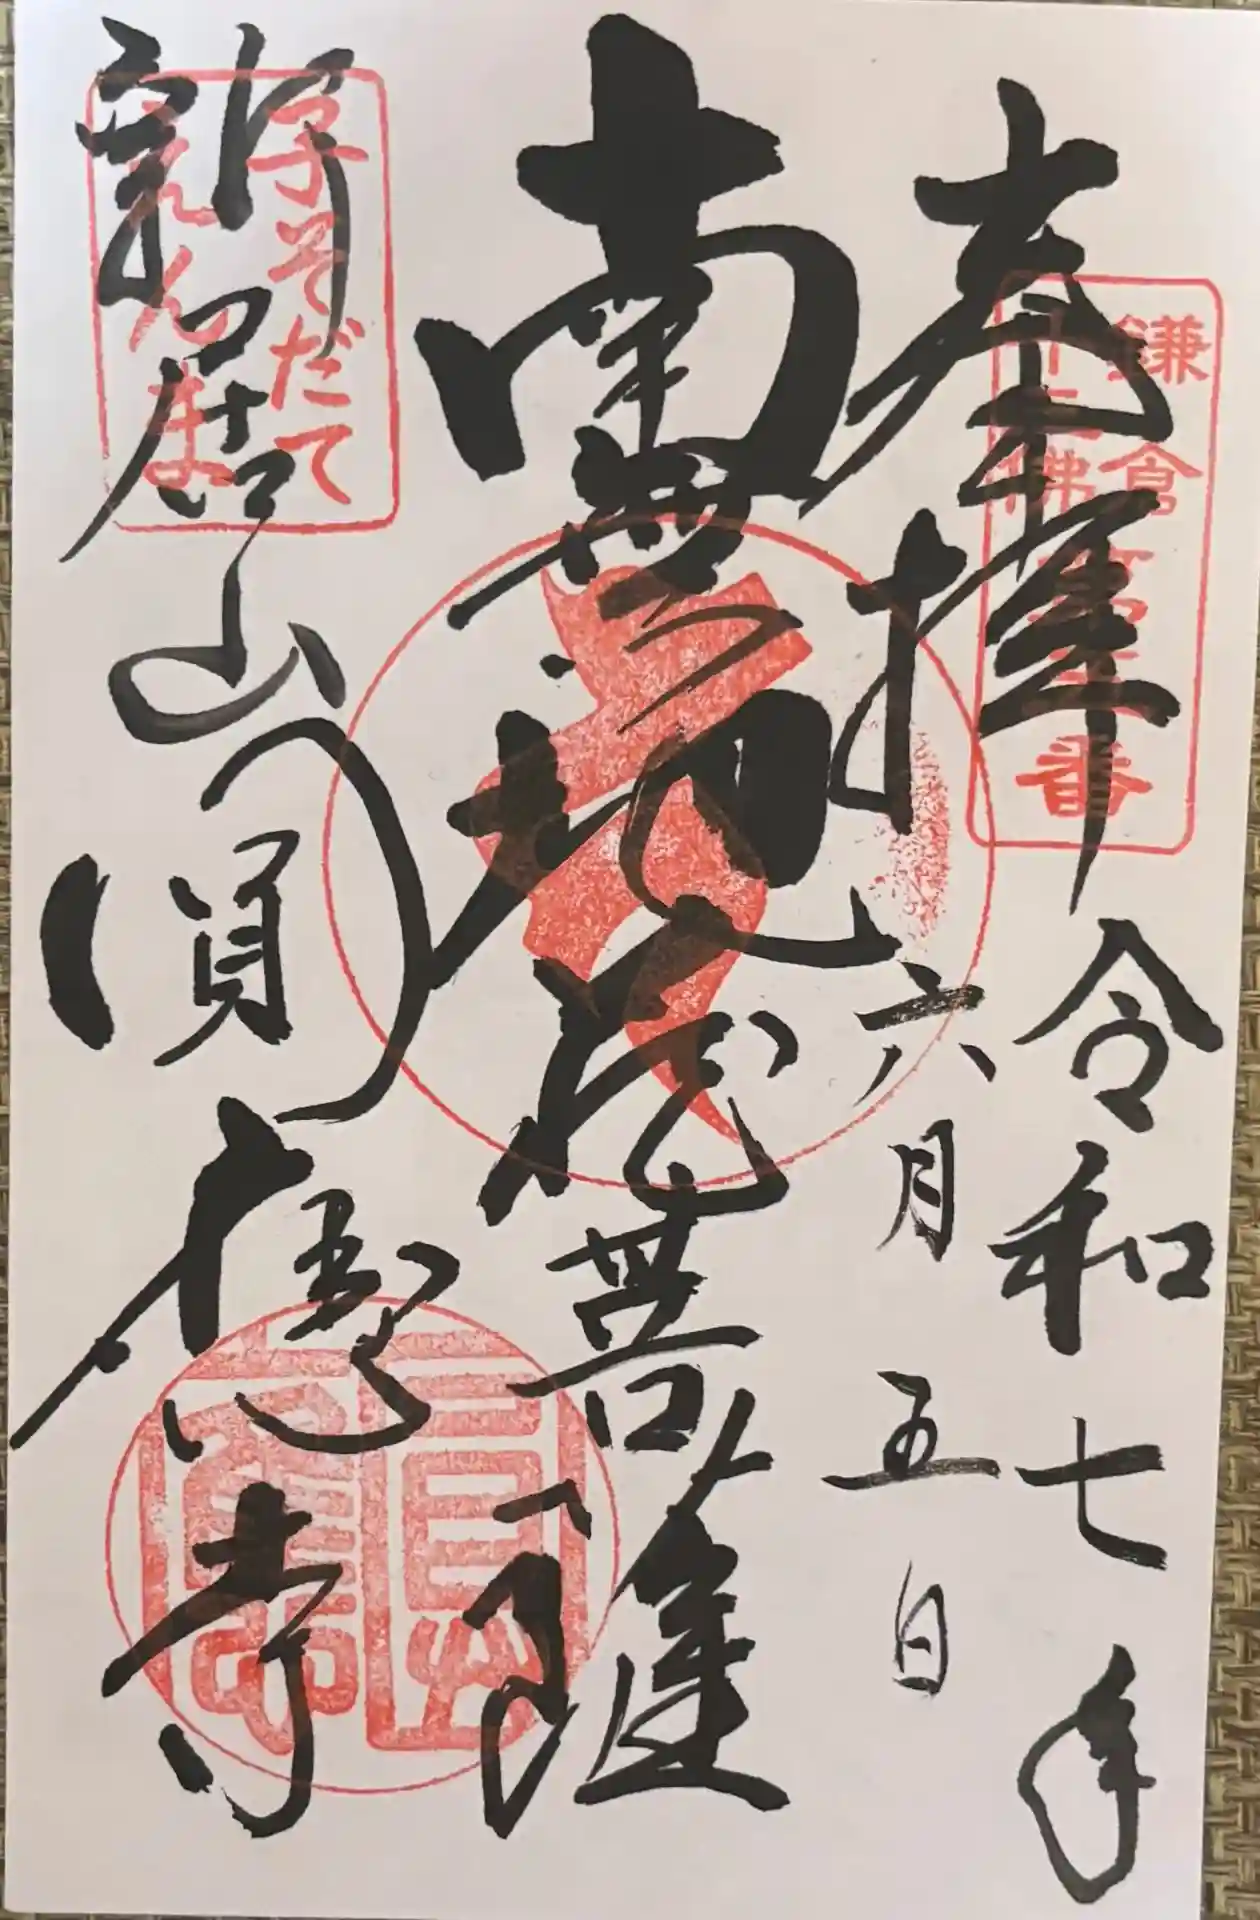 鎌倉
十三佛
第五番
奉拝
令和七年
六月五日
南無地蔵菩薩
子そだて
えんま
新居山圓應寺